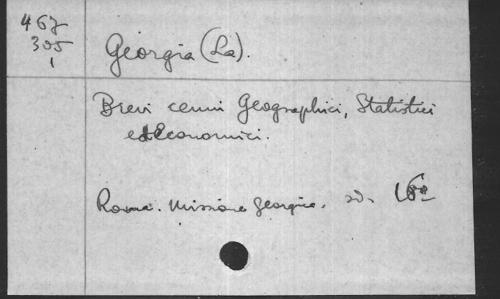 467
305
1
Georgia (La).
Brevi cenni Geografhici, Statistici
ed Economici.
Roma. Missione Georgia. sd. 16º